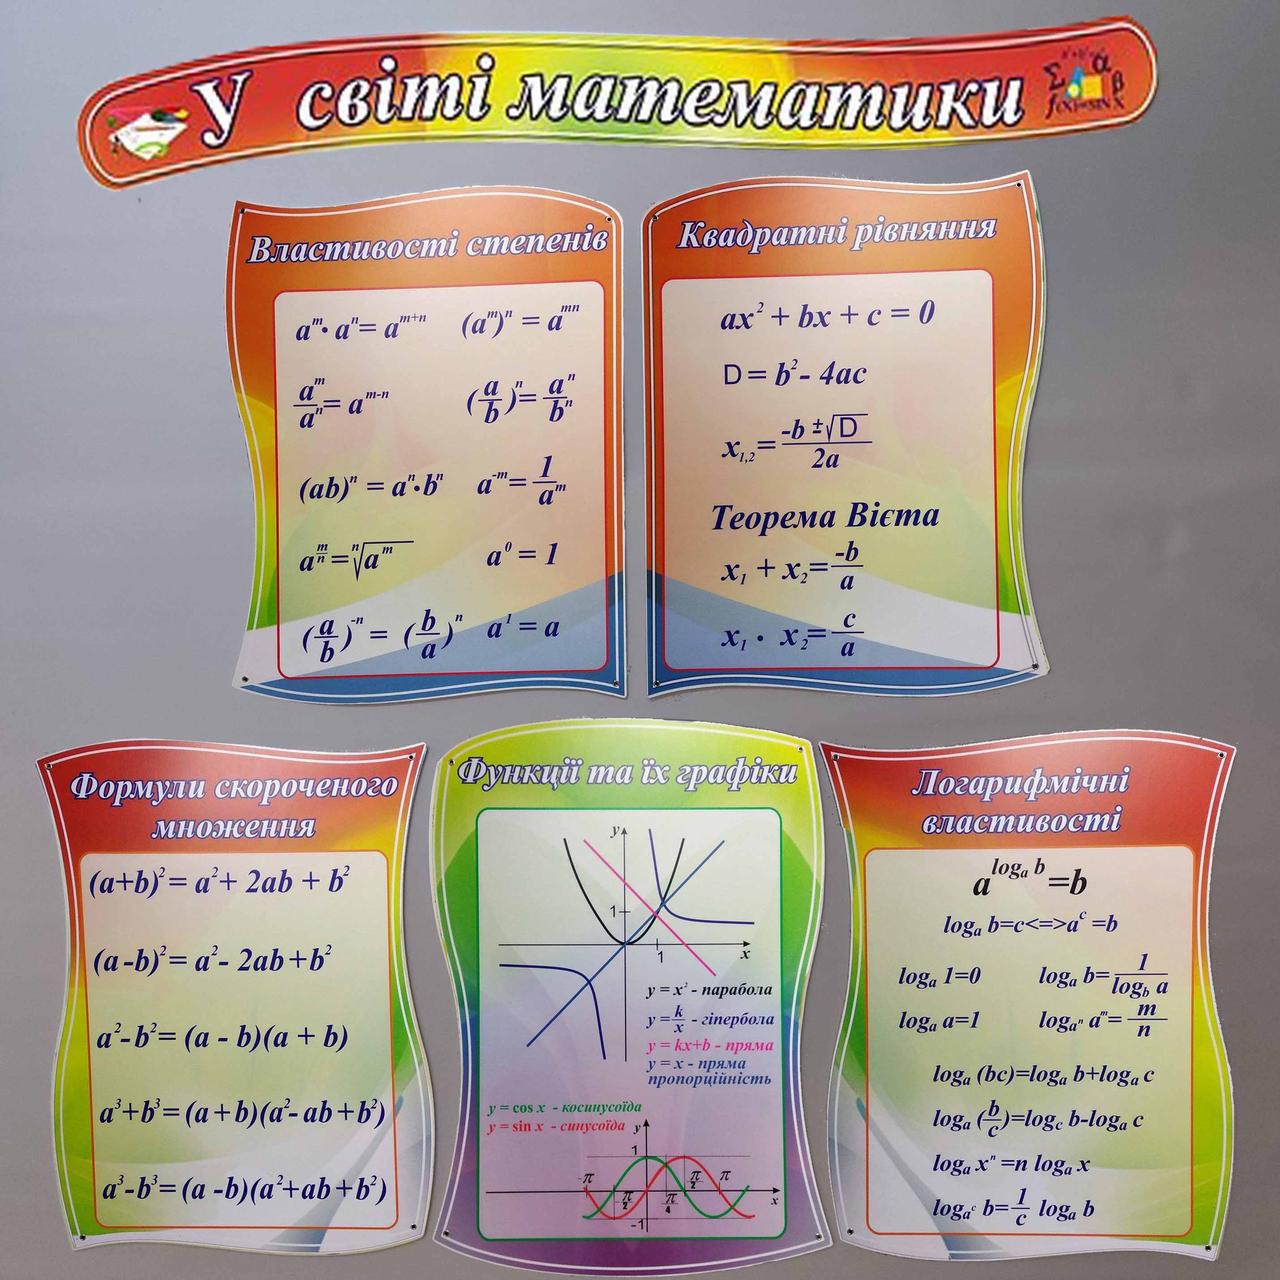 У світі математики
Σ α β f(x)=sin x
Властивості степенів
aᵐ· aⁿ= aᵐ⁺ⁿ (aᵐ)ⁿ = aᵐⁿ
aᵐ/aⁿ= aᵐ⁻ⁿ (a/b)ⁿ= aⁿ/bⁿ
(ab)ⁿ = aⁿ·bⁿ a⁻ᵐ= 1/aᵐ
a^(m/n) = ⁿ√aᵐ a⁰ = 1
(a/b)⁻ⁿ = (b/a)ⁿ a¹ = a
Квадратні рівняння
ax² + bx + c = 0
D = b² - 4ac
x₁,₂= (-b ±√D)/2a
Теорема Вієта
x₁ + x₂= -b/a
x₁ · x₂= c/a
Формули скороченого
множення
(a+b)² = a²+ 2ab + b²
(a-b)² = a²- 2ab+b²
a²-b²= (a - b)(a + b)
a³+b³= (a+b)(a²- ab+b²)
a³-b³= (a -b)(a²+ab+b²)
Функції та їх графіки
y
1
1 x
y = x² - парабола
y = k/x - гіпербола
y = kx+b - пряма
y = x - пряма
пропорційність
y = cos x - косинусоїда
y = sin x - синусоїда y
1
-π -π/2 π/4 π/2 π x
-1
Логарифмічні
властивості
a^(logₐ b) =b
logₐ b=c<=>aᶜ =b
logₐ 1=0 logₐ b= 1/log_b a
logₐ a=1 log_aⁿ aᵐ= m/n
logₐ (bc)=logₐ b+logₐ c
logₐ (b/c)=log_c b-logₐ c
logₐ xⁿ =n logₐ x
log_aᶜ b= 1/c logₐ b